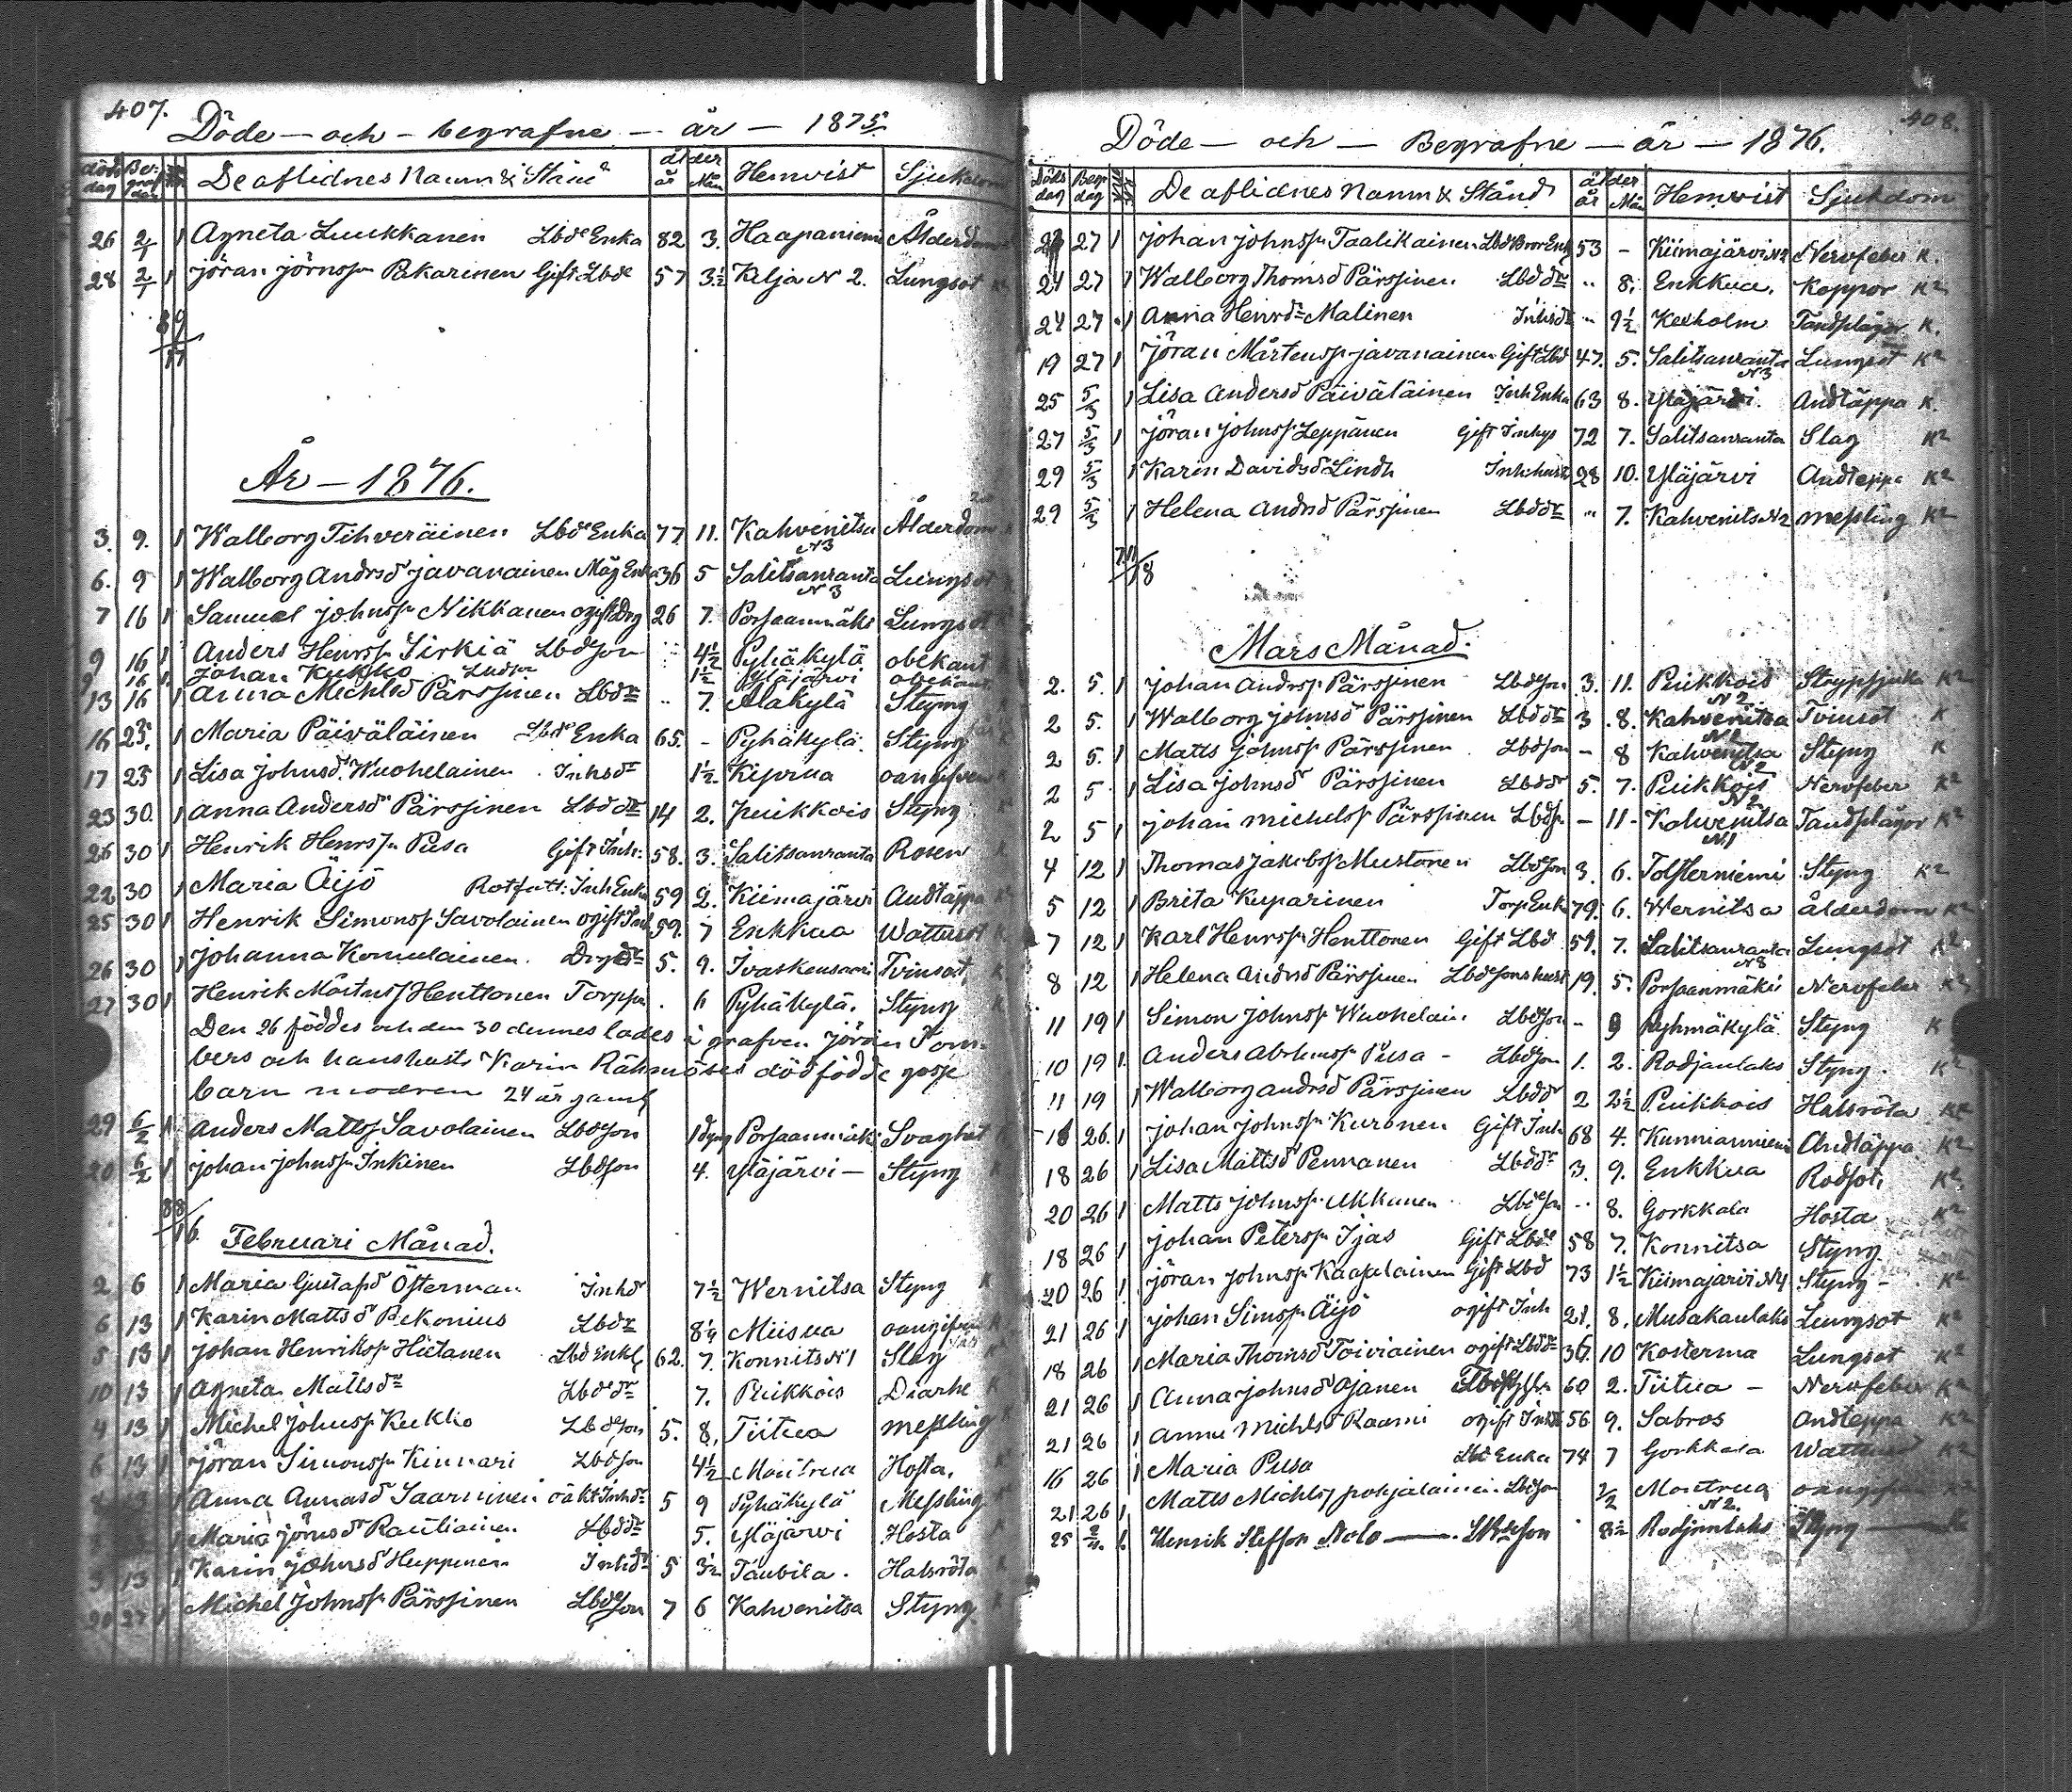 407.
Döde — och — begrafne — år — 1875
död dag Be: graf dag De aflidnes Namn & Stånd ålder år Mån Hemvist Sjukdom
26 2/1 1 Agneta Luukkanen Lbde Enka 82 3. Haapaniemi Ålderdom
28 2/1 1 Jöran Jörnssn Pekarinen Gift Lbde 57 3½ Kelja N 2. Lungsot
89
17
År — 1876.
3. 9. 1 Walborg Tihveräinen Lbde Enka 77 11. Kahvenitsa N3 Ålderdom
6. 9 1 Walborg Andrsd Javanainen Måg Enka 36 5 Salitsanranta N3 Lungsot
7 16 1 Samuel Johnssn Nikkanen ogift Drg 26 7. Porsaanmäki Lungsot
9 16 1 Anders Henrssn Sirkiä Lbdson 4½ Pyhäkylä obekant
9 16 1 Johan Kukko Lbdsn 1½ Yläjärvi obekant
13 16 1 Anna Michlsd Pärssinen Lbdr 7. Alakylä Styng
16 25. 1 Maria Päiväläinen Lbde Enka 65. - Pyhäkylä. Styng
17 25 1 Lisa Johnsd. Wuohelainen Inhsdr 1½ Kiprua oangifven
23 30. 1 Anna Andersd Pärssinen Lbddr 14 2. Puikkois Styng
26 30 1 Henrik Henrssn Pusa Gift Inh: 58. 3. Salitsanranta Rosen
22 30 1 Maria Äijö Rotfatt: Inh Enka 59 2. Kiimajärvi Andtäppa
25 30 1 Henrik Simonss Savolainen ogift Inh 59. 7 Enkkua Wattusot
26 30 1 Johanna Komulainen. Drgdr 5. 9. Ivaskensaari Tvinsot
27 30 1 Henrik Mårtnss Henttonen Torppson 6 Pyhäkylä. Styng
Den 26 föddes och den 30 dennes lades i grafven Jöran Tom-
bers och hans hustr Karin Rähmöses dödfödde gosse
barn modren 24 år gaml
29 6/2 1 Anders Mattss Savolainen Lbdson 1 dyng Porsaanmäki Svaghet
20 6/2 1 Johan Johnssn Inkinen Lbdson 4. Yläjärvi — Styng
88
16.
Februari Månad.
2 6 1 Maria Gustafsd Österman Inhd 7½ Wernitsa Styng K
6 13 1 Karin Mattsd Pekonius Lbdr Miisua oangifven
5 13 1 Johan Henrikss Hietanen Lbd Enkl 62. 7. Konnits N1 Slag
10 13 1 Agneta Mattsdr Lbdedr 7. Puikkois Diarhe
4 13 1 Michel Johnss Kukko Lbdson 5. 8. Tiitua Messling
6 13 1 Jöran Simonssn Kinnari Lbdson 4½ Montrua Hosta.
Anna Annasd Saarninen oäkt Inhdr 5 9 Pyhäkylä Messling
Maria Jörnsdr Rautiainen Lbddr 5. Yläjärvi Hosta
13 1 Karin Johnsd Huppunen Inhdr 5 3½ Taubila. Halsröta
20 27 1 Michel Johnssn Pärssinen Lbdson 7 6 Kahvenitsa Styng
408.
Döde — och — Begrafne — år — 1876.
Döds dag Begr dag De aflidnes Namn & Stånd ålder år Mån Hemvist Sjukdom
27 1 Johan Johnssn Taalikainen Lbd Bror Enkl 53 - Kiimajärvi N2 Nervfeber K.
24 27 1 Walborg Thomsd Pärssinen Lbddr „ 8. Enkkua. Koppor K2
24 27 1 Anna Henrdr Malinen Inhsdr „ 9½ Kexholm Tandplågor K.
19 27 1 Jöran Mårtenss Javanainen Gift Lbd 47. 5. Salitsanranta N3 Lungsot K2
25 5/3 1 Lisa Andersd Päiväläinen Inh Enka 63 8. Yläjärvi. Andtäppa K.
27 5/3 1 Jöran Johnss Leppänen Gift Inhys 72 7. Salitsanranta Slag K2
29 5/3 1 Karin Davidsd Lindh Inh: hustr 28 10. Yläjärvi Andteppa K2
29 5/3 1 Helena Andrsd Pärssinen Lbddr „ 7. Kahvenits N2 Messling K2
8
Mars Månad.
2. 5. 1 Johan Andrss Pärssinen Lbdson 3. 11. Puikkois N2 Strypsjuka K2
2 5. 1 Walborg Johnsd Pärssinen Lbddr 3 8. Kahvenitsa N1 Tvinsot K
2 5. 1 Matts Johnss Pärssinen Lbdson — 8 Kahvenitsa N2 Styng K
2 5 1 Lisa Johnsdr Pärssinen Lbddr 5. 7. Puikkois N2 Nervfeber K2
2 5 1 Johan Michelss Pärssinen Lbdsn — 11 - Kahvenitsa N1 Tandplågor K2
4 12 1 Thomas Jakobss Mustonen Lbdson 3. 6. Tolsterniemi Styng K2
5 12 1 Brita Kuparinen Torp Enk 79. 6. Wernitsa ålderdom K2
7 12 1 Karl Henrssn Henttonen Gift Lbd 59. 7. Salitsanranta N8 Lungsot K2
8 12 1 Helena Andrsd Pärssinen Lbdesons hustr 19. 5. Porsaanmäki Nervfeber K2
11 19 1 Simon Johnss Wuohelain. Lbdson - 9 Ryhmäkylä Styng K
10 19 1. Anders Abrhmssn Pusa - Lbdson 1. 2. Rodjanlaks Styng. K2
11 19 1 Walborg Andrsd Pärssinen Lbddr 2 2½ Puikkois Halsröta K2
18 26. 1 Johan Johnssn Kuronen Gift Inh 68 4. Kunnianniemi Andtäppa K2
18 26 1 Lisa Mattsd Pennanen Lbddr 3. 9. Enkkua Rodsot. K2
20 26 1 Matts Johnss Ukkanen Lbdeson 8. Gorkkala Hosta K2
18 26 1 Johan Peterssn Ijas Gift Lbde 58 7. Konnitsa Styng
20 26 1 Jöran Johnssn Kaapalainen Gift Lbd 73 1½ Kiimajärvi N4 Styng - K2
21 26 1 Johan Simssn Äijö ogift Inh 21. 8. Musakanlaks Lungsot K2
18 26 1 Maria Thomsd Toiviainen ogift Lbddr 36. 10 Kosterma Lungsot K2
21 26 1 Anna Johnsd Ojanen 60 2. Tiitua - Nervfeber K2
21 26 1 Anna Michlsd Raami ogift Inhdr 56 9. Sabros Andteppa K2
16 26 1 Maria Pusa Lbd Enka 74 7 Gorkkala Wattusot K2
21 26 1 Matts Michlss Pohjalainen Lbdson ½ Montrua N2. oangifven K2
25 2/4. 1. Henrik Steffson Nolo —— Lbdeson 8½ Rodjanlaks Styng —